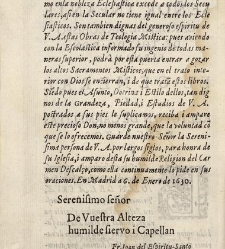 mo en la nobleza Eclesiastica excede a todos los Secu
lares, assi en la Secular no tiene igual entre los Ecle
siasticos. Son tambien dignas del generoso espiritu de
V. A. estas Obras de Teologia Mistica: pues aviendo
con la Escolastica informado su ingenio de todas ma
neras superior, podrà por esta puerta entrar a gozar
los altos Sacramentos Misticos, que en el trato interior
con Dios se encierran, i de que tratã estos libros.
Siẽdo pues el Assunto, Dotrina i Estilo dellos, tan dig
nos de la Grandeza, Piedad, i Estudios de V. A.
postrados a sus pies le suplicamos, reciba i ampare
este precioso Don, no menos grande, que la volũtad cõ
que se lo ofrecemos. Guarde nuestro Señor la Sereni
ssima persona de V. A. por largos siglos, para honra de
su Iglesia, i amparo desta su humilde Religion del Carmen
Descalço, como ella continuamente lo pide en sus
oraciones. En Madrid a 6. de Enero de 1630.
Serenissimo señor
De Vuestra Alteza
humilde siervo i Capellan
Fr. Ioan del Espiritu Santo